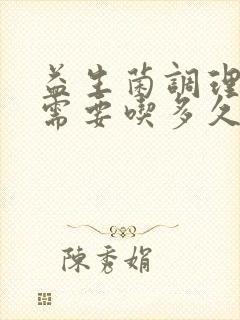 益生菌調理
需要喫多久
陳秀娟